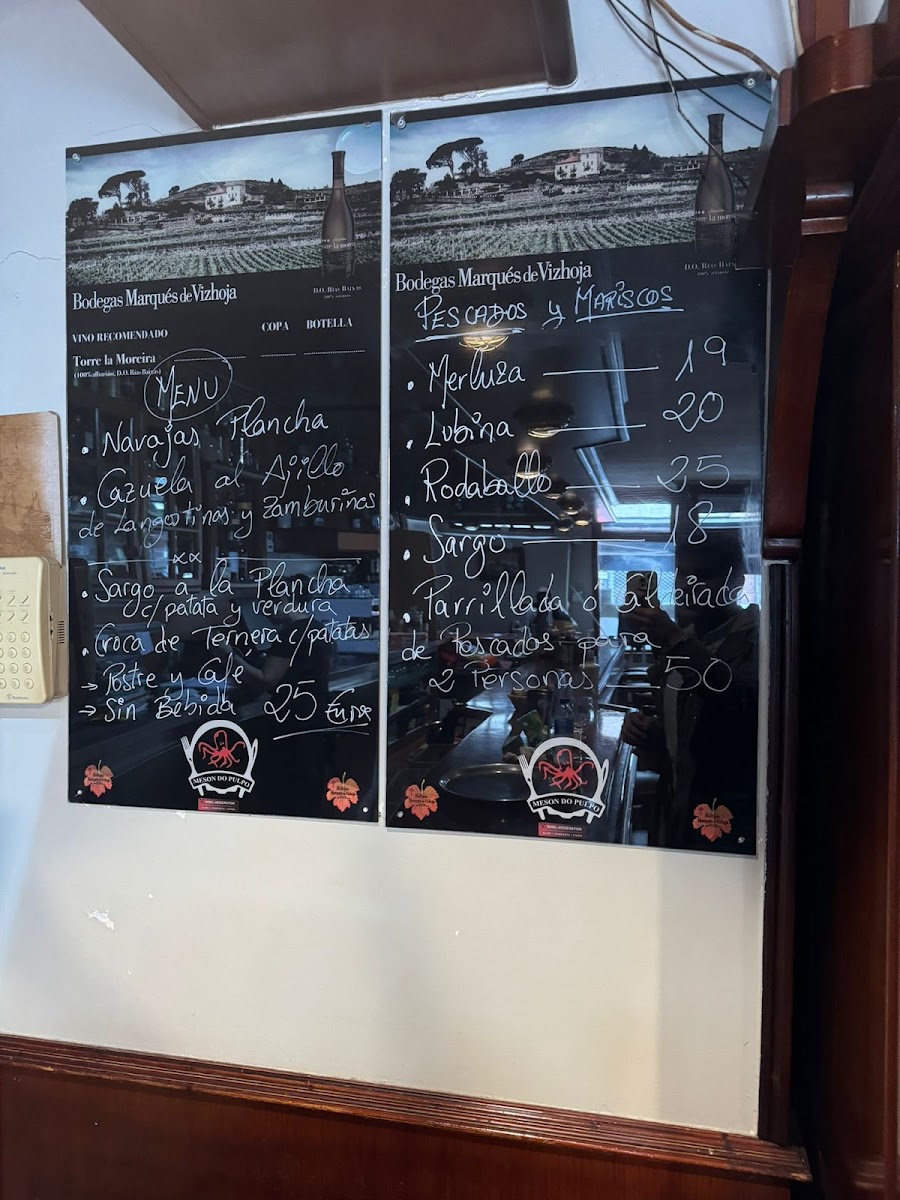 Bodegas Marqués de Vizhoja
D.O. RIAS BAIXAS
VINO RECOMENDADO COPA BOTELLA
Torre la Moreira
(100% albariño, D.O. Rías Baixas)
MENU
. Navajas Plancha
. Cazuela al Ajillo
de Langostinos y Zamburiñas
. Sargo a la Plancha
c/patata y verdura
. Croca de Ternera c/patatas
→ Postre y Café
→ Sin Bebida 25 Euros
MESON DO PULPO
Bodegas Marqués de Vizhoja
D.O. RIAS BAIXAS
PESCADOS y MARISCOS
. Merluza — 19
. Lubina — 20
. Rodaballo — 25
. Sargo — 18
. Parrillada ó Caldeirada
de Pescados para
2 Personas — 50
MESON DO PULPO